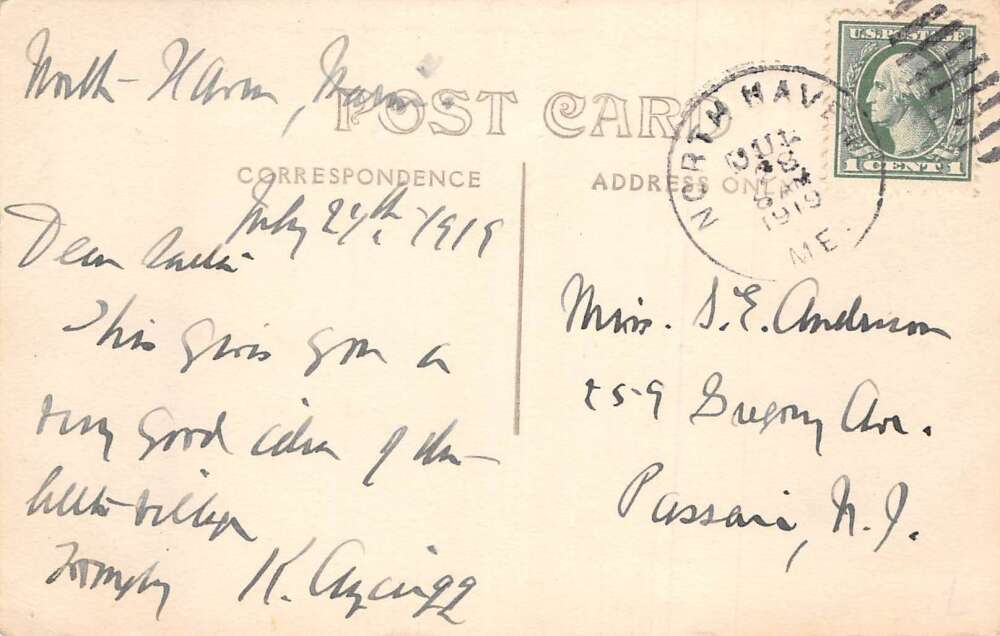 North Haven, Maine
POST CARD
CORRESPONDENCE
ADDRESS ONLY
U.S. POSTAGE
1 CENT 1
NORTH HAVEN
JUL
28
AM
1919
ME.
July 27th 1919
Dear
This gives you a
very good idea of the
little village
K.
Miss. S. E. Anderson
259 Gregory Ave.
Passaic, N. J.